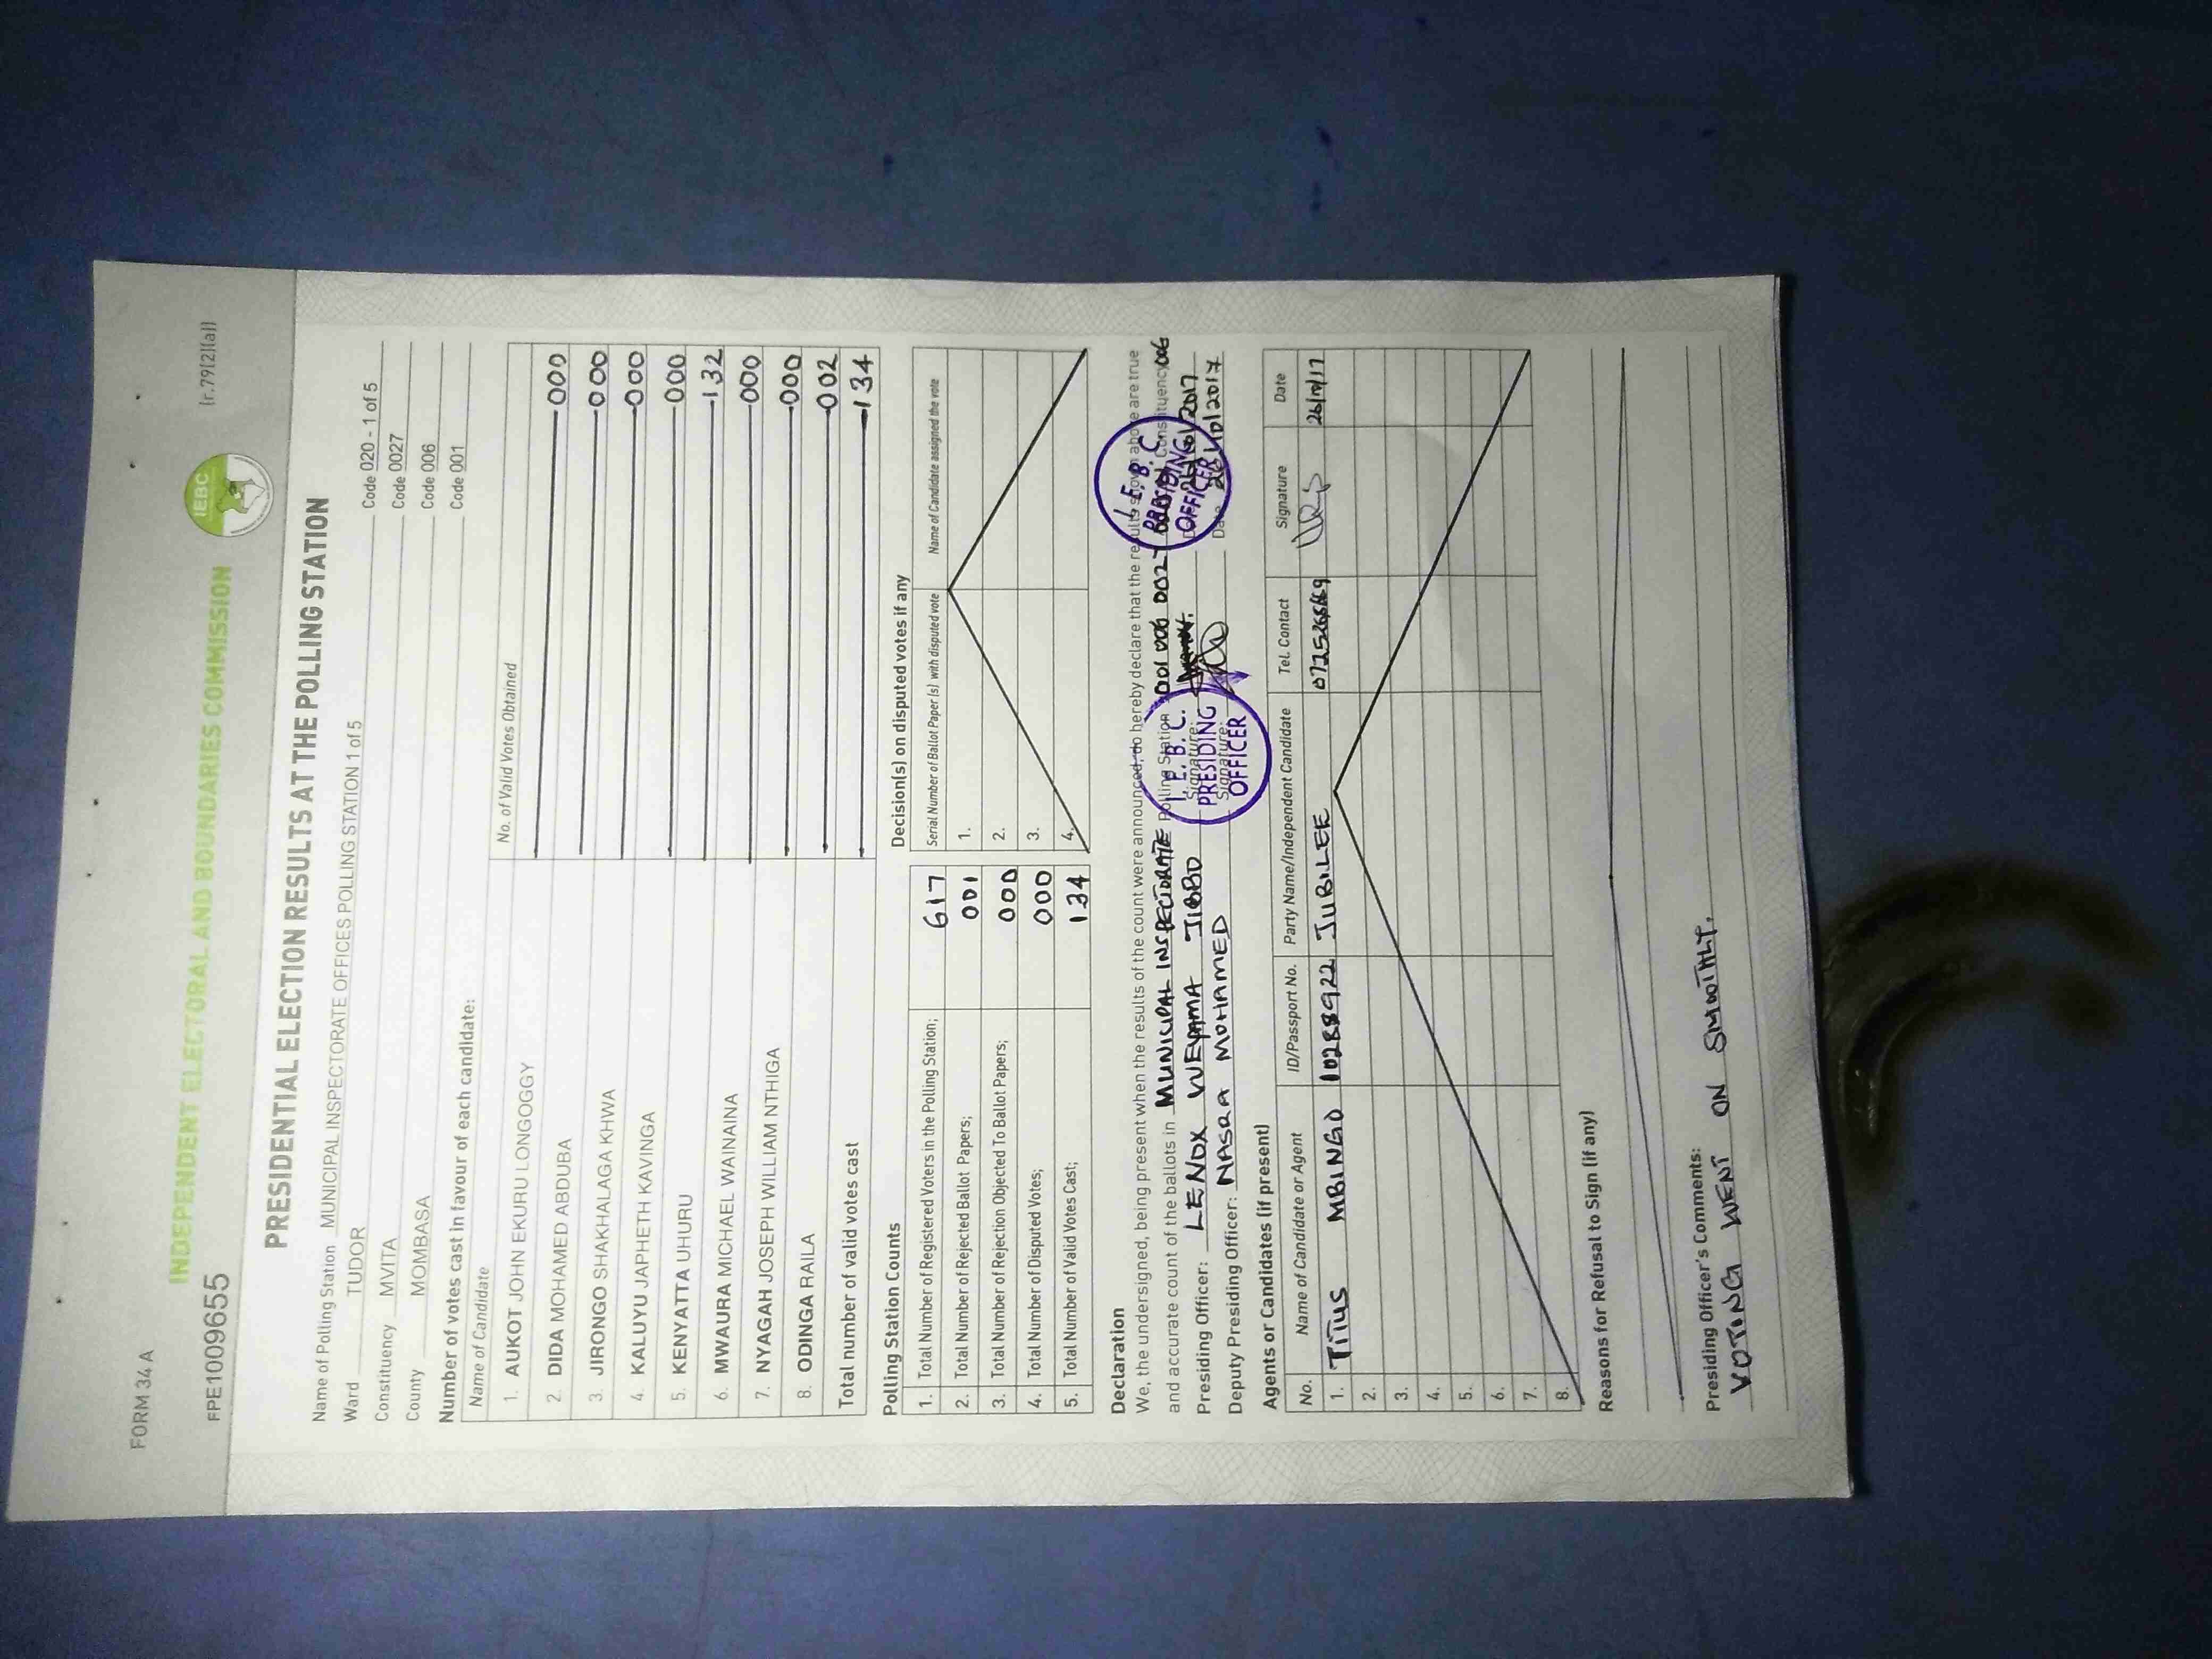 FORM 34 A
(r.79(2)(a))
FPE1009655
INDEPENDENT ELECTORAL AND BOUNDARIES COMMISSION
IEBC
PRESIDENTIAL ELECTION RESULTS AT THE POLLING STATION
Name of Polling Station MUNICIPAL INSPECTORATE OFFICES POLLING STATION 1 of 5 Code 020 - 1 of 5
Ward TUDOR Code 0027
Constituency MVITA Code 006
County MOMBASA Code 001
Number of votes cast in favour of each candidate:
Name of Candidate No. of Valid Votes Obtained
1. AUKOT JOHN EKURU LONGOGGY 000
2. DIDA MOHAMED ABDUBA 000
3. JIRONGO SHAKHALAGA KHWA 000
4. KALUYU JAPHETH KAVINGA 000
5. KENYATTA UHURU 132
6. MWAURA MICHAEL WAINAINA 000
7. NYAGAH JOSEPH WILLIAM NTHIGA 000
8. ODINGA RAILA 002
Total number of valid votes cast 134
Polling Station Counts
1. Total Number of Registered Voters in the Polling Station; 617
2. Total Number of Rejected Ballot Papers; 001
3. Total Number of Rejection Objected To Ballot Papers; 000
4. Total Number of Disputed Votes; 000
5. Total Number of Valid Votes Cast; 134
Decision(s) on disputed votes if any
Serial Number of Ballot Paper (s) with disputed vote Name of Candidate assigned the vote
1.
2.
3.
4.
Declaration
We, the undersigned, being present when the results of the count were announced, do hereby declare that the results shown above are true
and accurate count of the ballots in MUNICIPAL INSPECTORATE Polling Station 001 006 002 Constituency 006
Presiding Officer: LENOX Signature: 2017
Deputy Presiding Officer: NASRA MOHAMED Signature: Date 2017
I. E. B. C. PRESIDING OFFICER
I. E. B. C. PRESIDING OFFICER
Agents or Candidates (if present)
No. Name of Candidate or Agent ID/Passport No. Party Name/Independent Candidate Tel. Contact Signature Date
1. TITUS MBINGO 10288922 JUBILEE 26/10/17
2.
3.
4.
5.
6.
7.
8.
Reasons for Refusal to Sign (if any)
Presiding Officer's Comments:
VOTING WENT ON